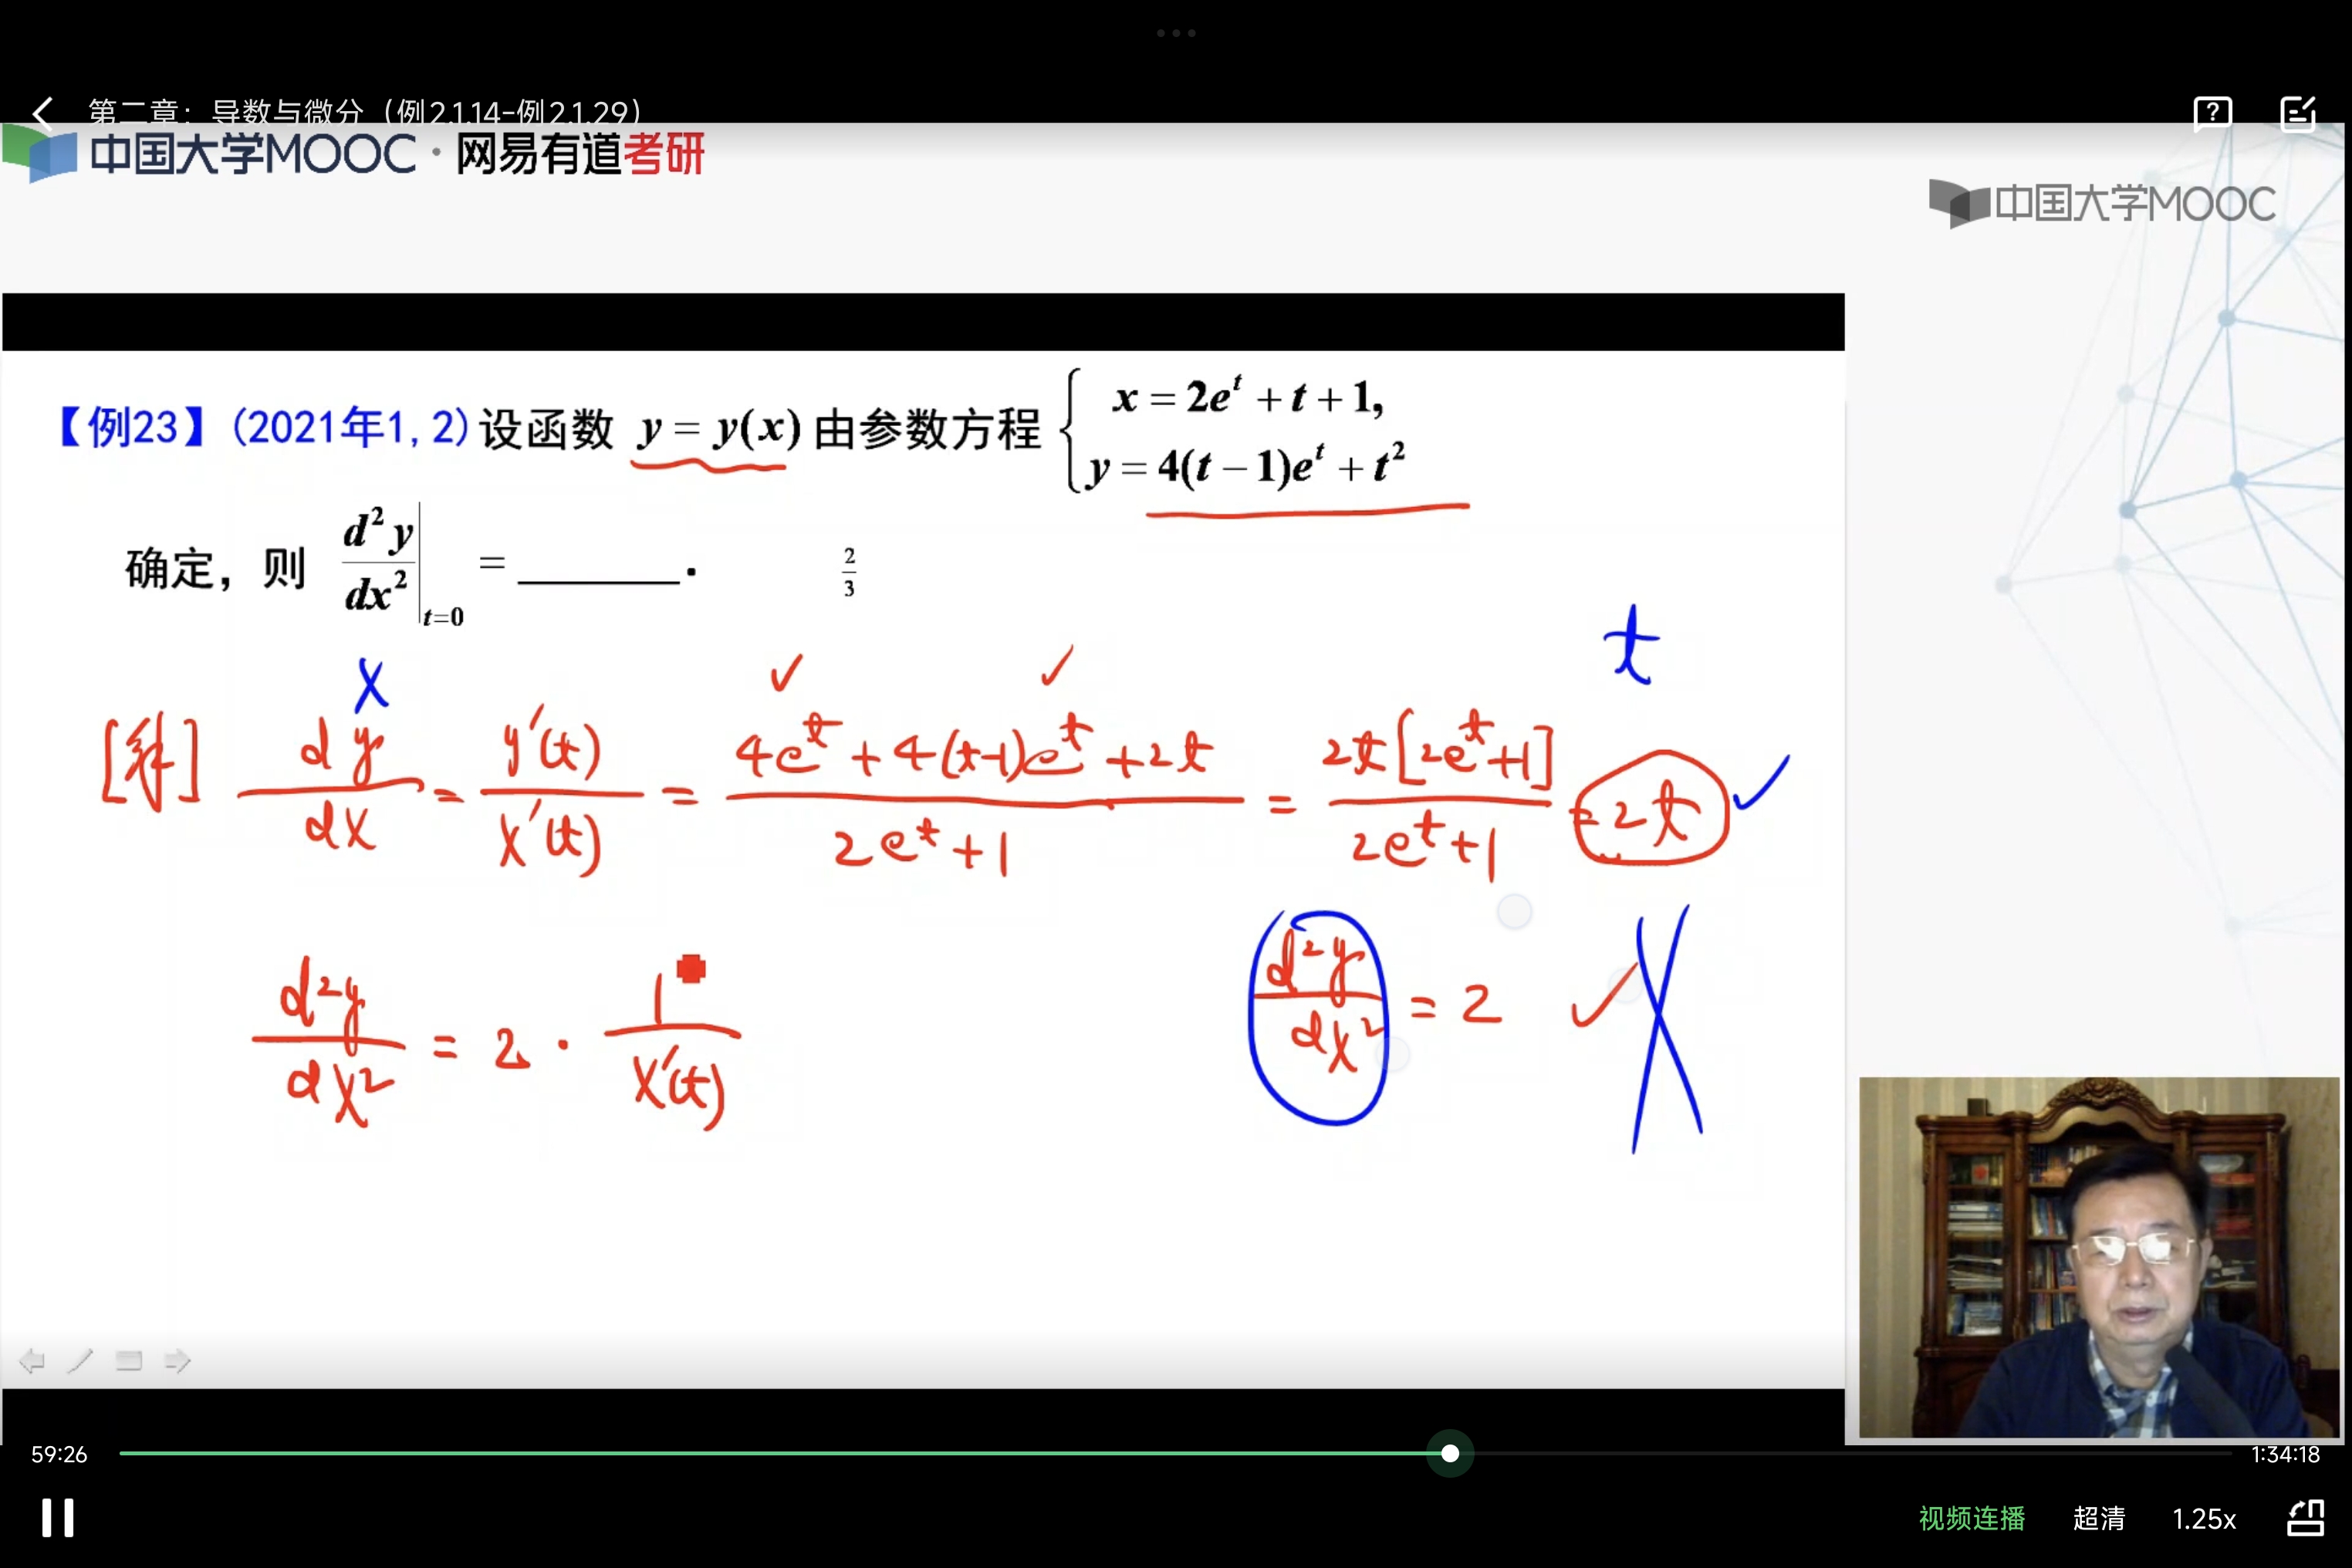 第二章：导数与微分（例2.1.14-例2.1.29）
中国大学MOOC · 网易有道考研
中国大学MOOC
【例23】(2021年1, 2) 设函数 y = y(x) 由参数方程 { x = 2e^t + t + 1,
y = 4(t − 1)e^t + t^2
确定，则 d²y/dx² |_{t=0} = ________ . 2/3
x t
[解] dy/dx = y′(t)/x′(t) = (4e^t + 4(t-1)e^t + 2t)/(2e^t + 1) = 2t[2e^t+1]/(2e^t+1) = 2t
d²y/dx² = 2 · 1/x′(t) d²y/dx² = 2
59:26 1:34:18
视频连播 超清 1.25x